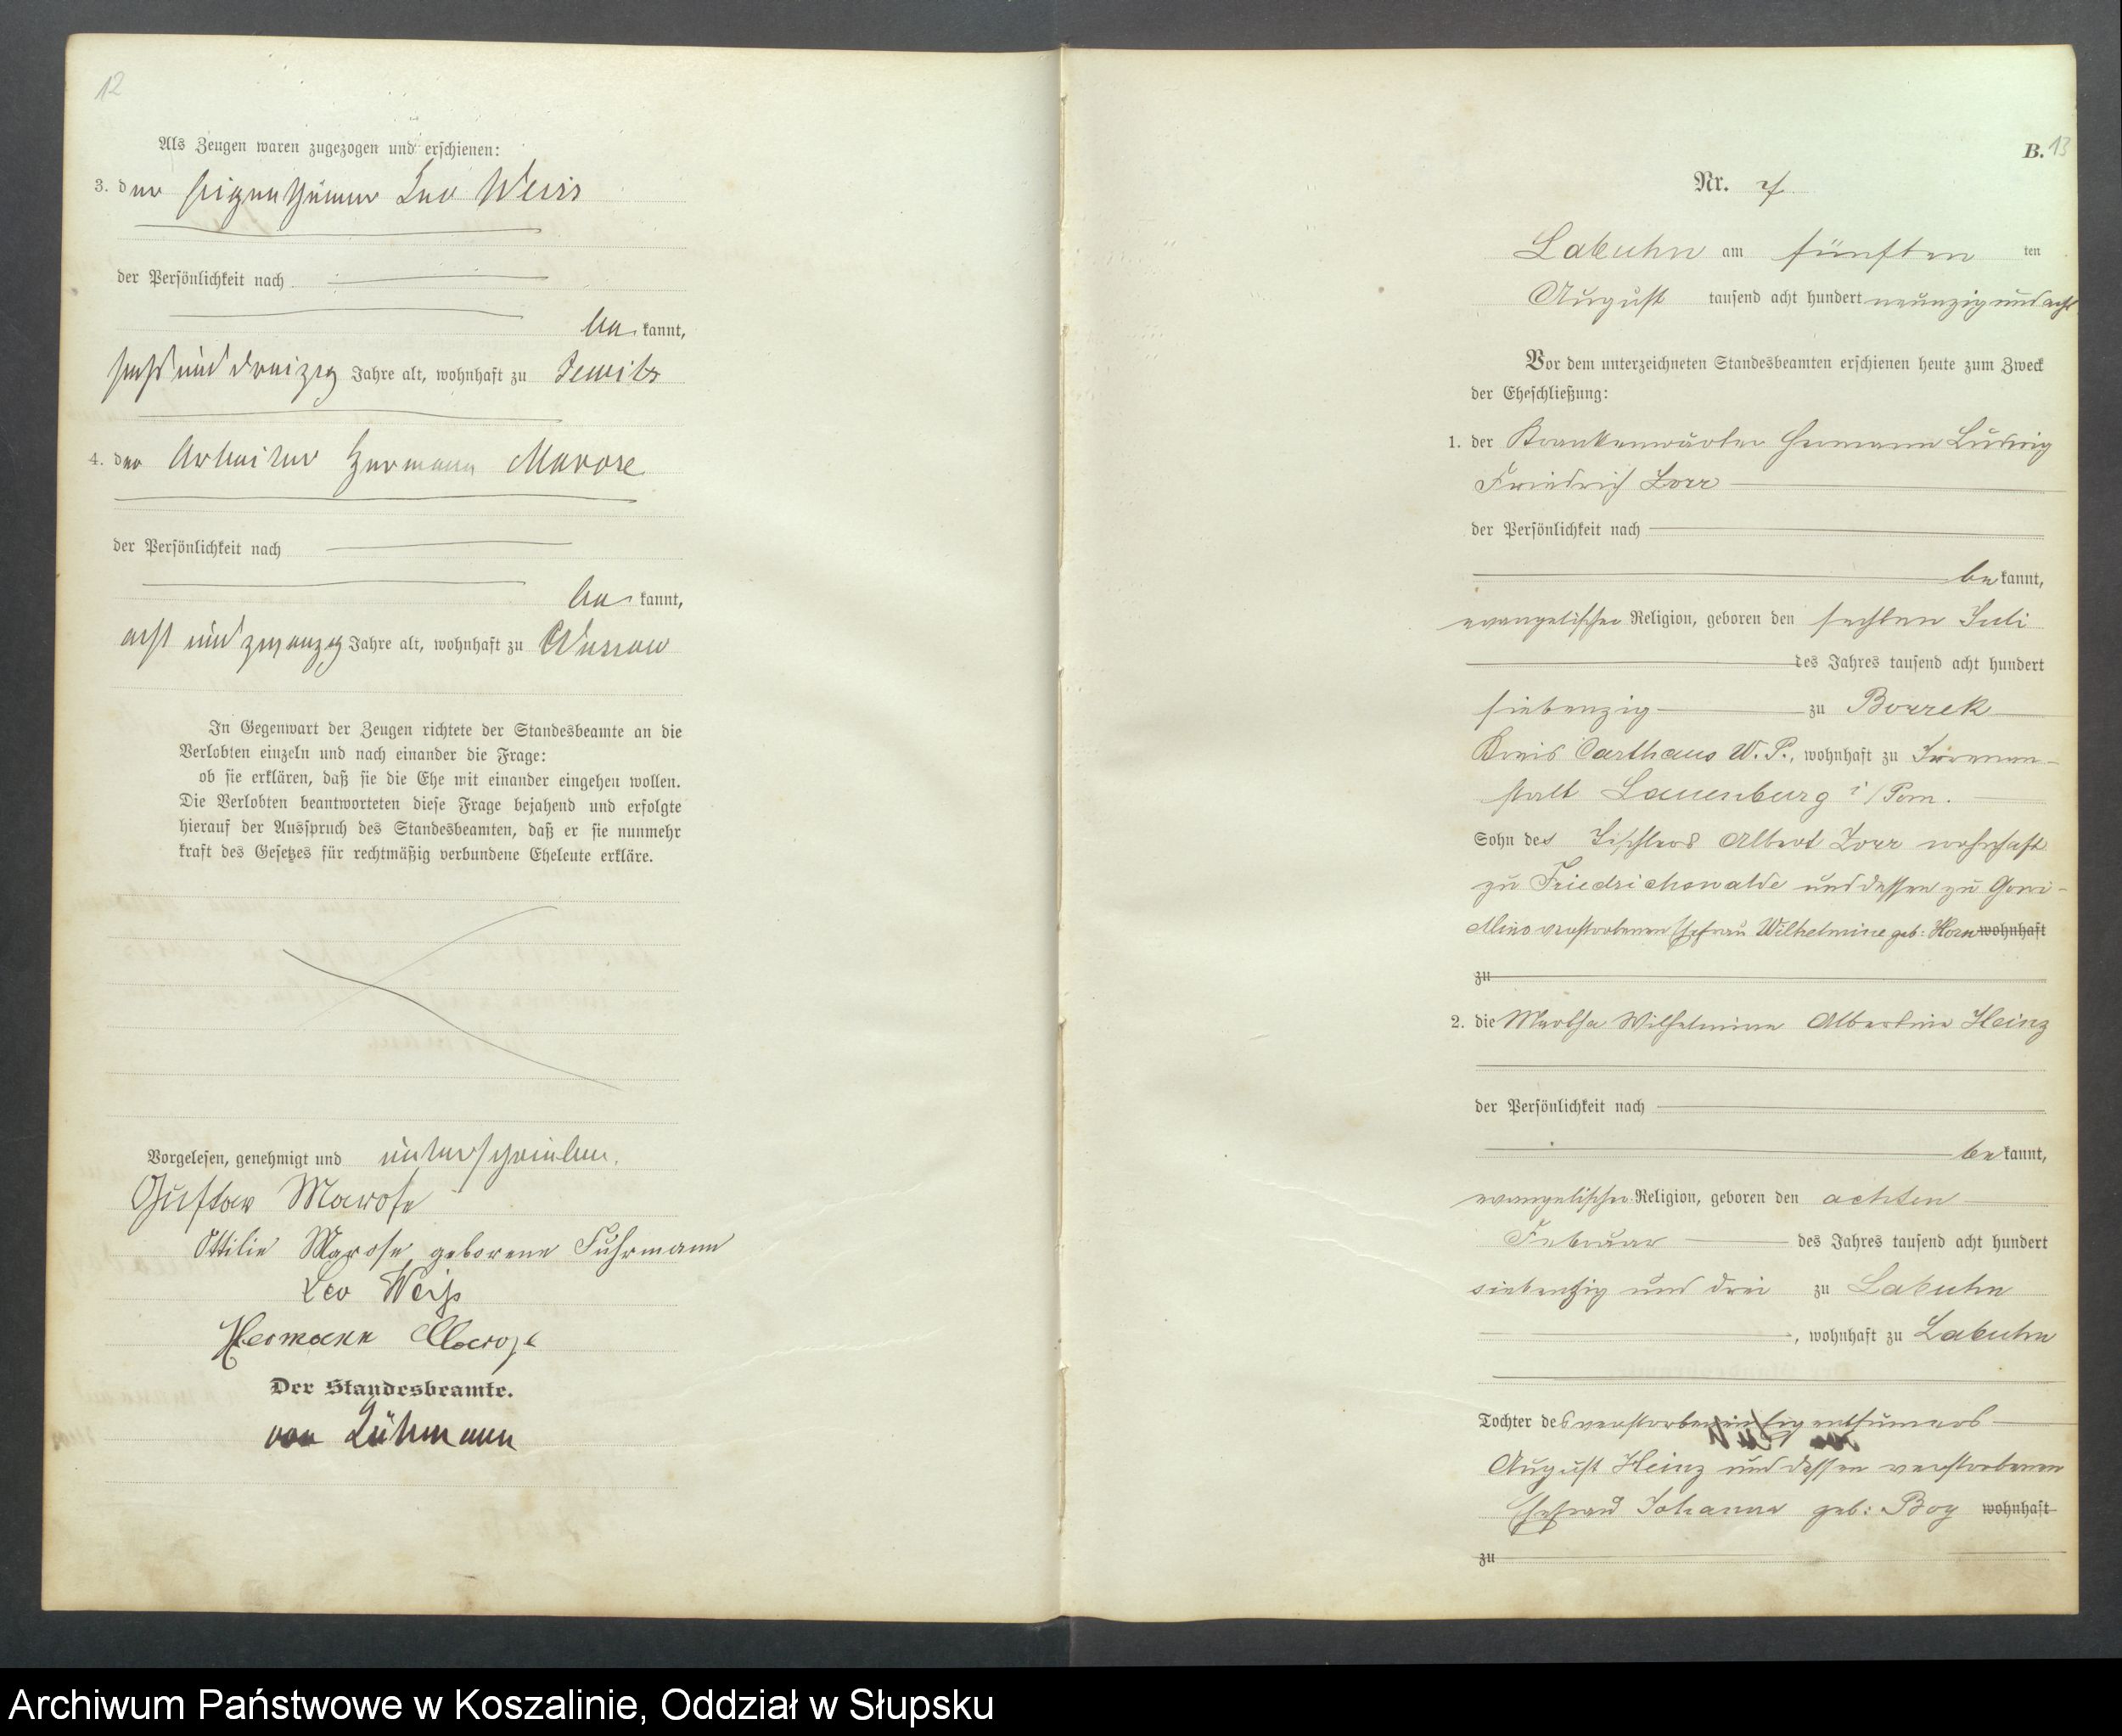 12
Als Zeugen waren zugezogen und erschienen:
3. der Eigenthümer Leo Weiss
der Persönlichkeit nach
be kannt,
sechs und dreizig Jahre alt, wohnhaft zu Jewitz
4. der Arbeiter Hermann Marose
der Persönlichkeit nach
be kannt,
acht und zwanzig Jahre alt, wohnhaft zu Wussow
In Gegenwart der Zeugen richtete der Standesbeamte an die
Verlobten einzeln und nach einander die Frage:
ob sie erklären, daß sie die Ehe mit einander eingehen wollen.
Die Verlobten beantworteten diese Frage bejahend und erfolgte
hierauf der Ausspruch des Standesbeamten, daß er sie nunmehr
kraft des Gesetzes für rechtmäßig verbundene Eheleute erkläre.
Vorgelesen, genehmigt und unterschrieben.
Gustav Marose
Ottilie Marose geborene Fuhrmann
Leo Weiß
Hermann Marose
Der Standesbeamte.
von Lühmann
B. 13
Nr. 7
Labuhn am fünften ten
August tausend acht hundert neunzig und acht
Vor dem unterzeichneten Standesbeamten erschienen heute zum Zweck
der Eheschließung:
1. der Krankenwärter Hermann Ludwig
Friedrich Zorr
der Persönlichkeit nach
be kannt,
evangelischer Religion, geboren den sechten Juli
des Jahres tausend acht hundert
siebenzig zu Borrek
Kreis Carthaus W. P., wohnhaft zu Irrenan-
stalt Lauenburg i/Pom.
Sohn des Tischlers Albert Zorr wohnhaft
zu Friedrichswalde und dessen zu
verstorbenen Ehefrau Wilhelmine geb: Horn wohnhaft
zu
2. die Martha Wilhelmine Albertine Heinz
der Persönlichkeit nach
be kannt,
evangelischer Religion, geboren den achten
Februar des Jahres tausend acht hundert
siebenzig und drei zu Labuhn
, wohnhaft zu Labuhn
Tochter des verstorbenen Eigenthümers
August Heinz und dessen verstorbenen
Ehefrau Johanna geb: Boy wohnhaft
zu
Archiwum Państwowe w Koszalinie, Oddział w Słupsku